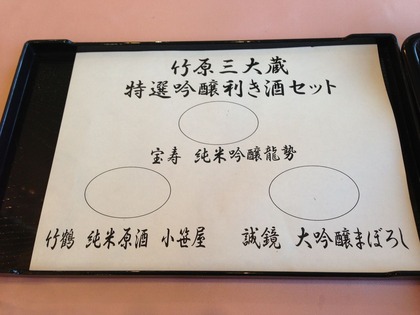 竹原三大蔵
特選吟醸利き酒セット
宝寿 純米吟醸龍勢
竹鶴 純米原酒 小笹屋
誠鏡 大吟醸まぼろし